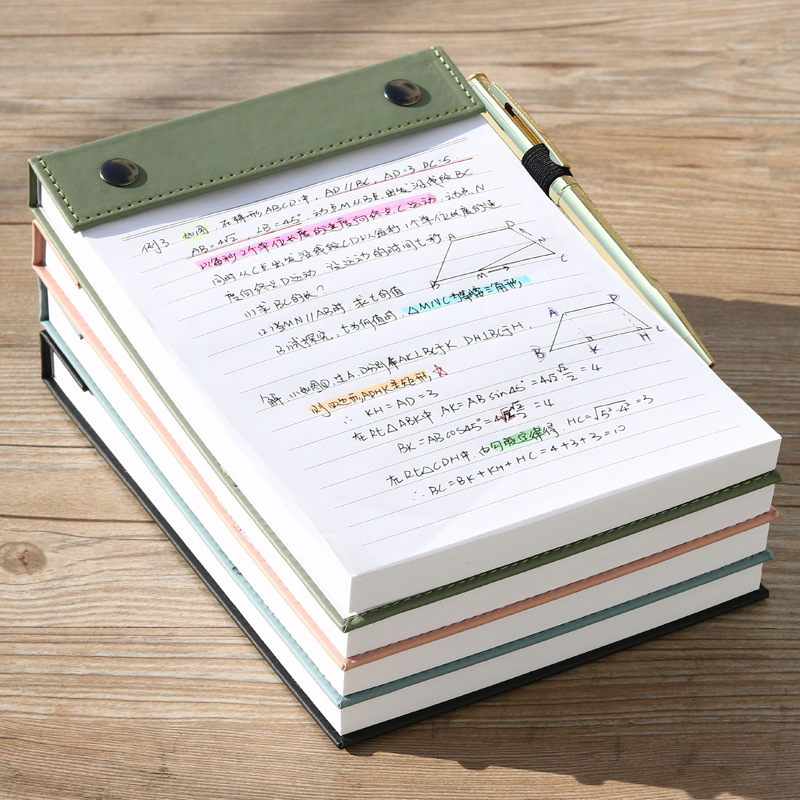 例3. 如图，在梯形ABCD中，AD//BC，AD=3 DC=5.
AB=4√2 ∠B=45° 动点M从B点出发沿线段BC
以每秒2个单位长度的速度向终点C运动，动点N
同时从C点出发沿线段CD以每秒1个单位长度的速
度向终点D运动，设运动的时间t秒
A D N
B M C
(1)求BC的长？
(2)当MN//AB时，求t的值
(3)试探究，t为何值时，△MNC为等腰三角形
A D
B K H C
解：(1)如图①，过A.D分别作AK⊥BC于K DH⊥BC于H.
则四边形ADHK是矩形，
∴ KH=AD=3
在Rt△ABK中 AK=ABsin45°=4√2·√2/2=4
BK=ABcos45°=4√2·√2/2=4
在Rt△CDH中，由勾股定律得，HC=√5²-4²=3
∴BC=BK+KH+HC=4+3+3=10